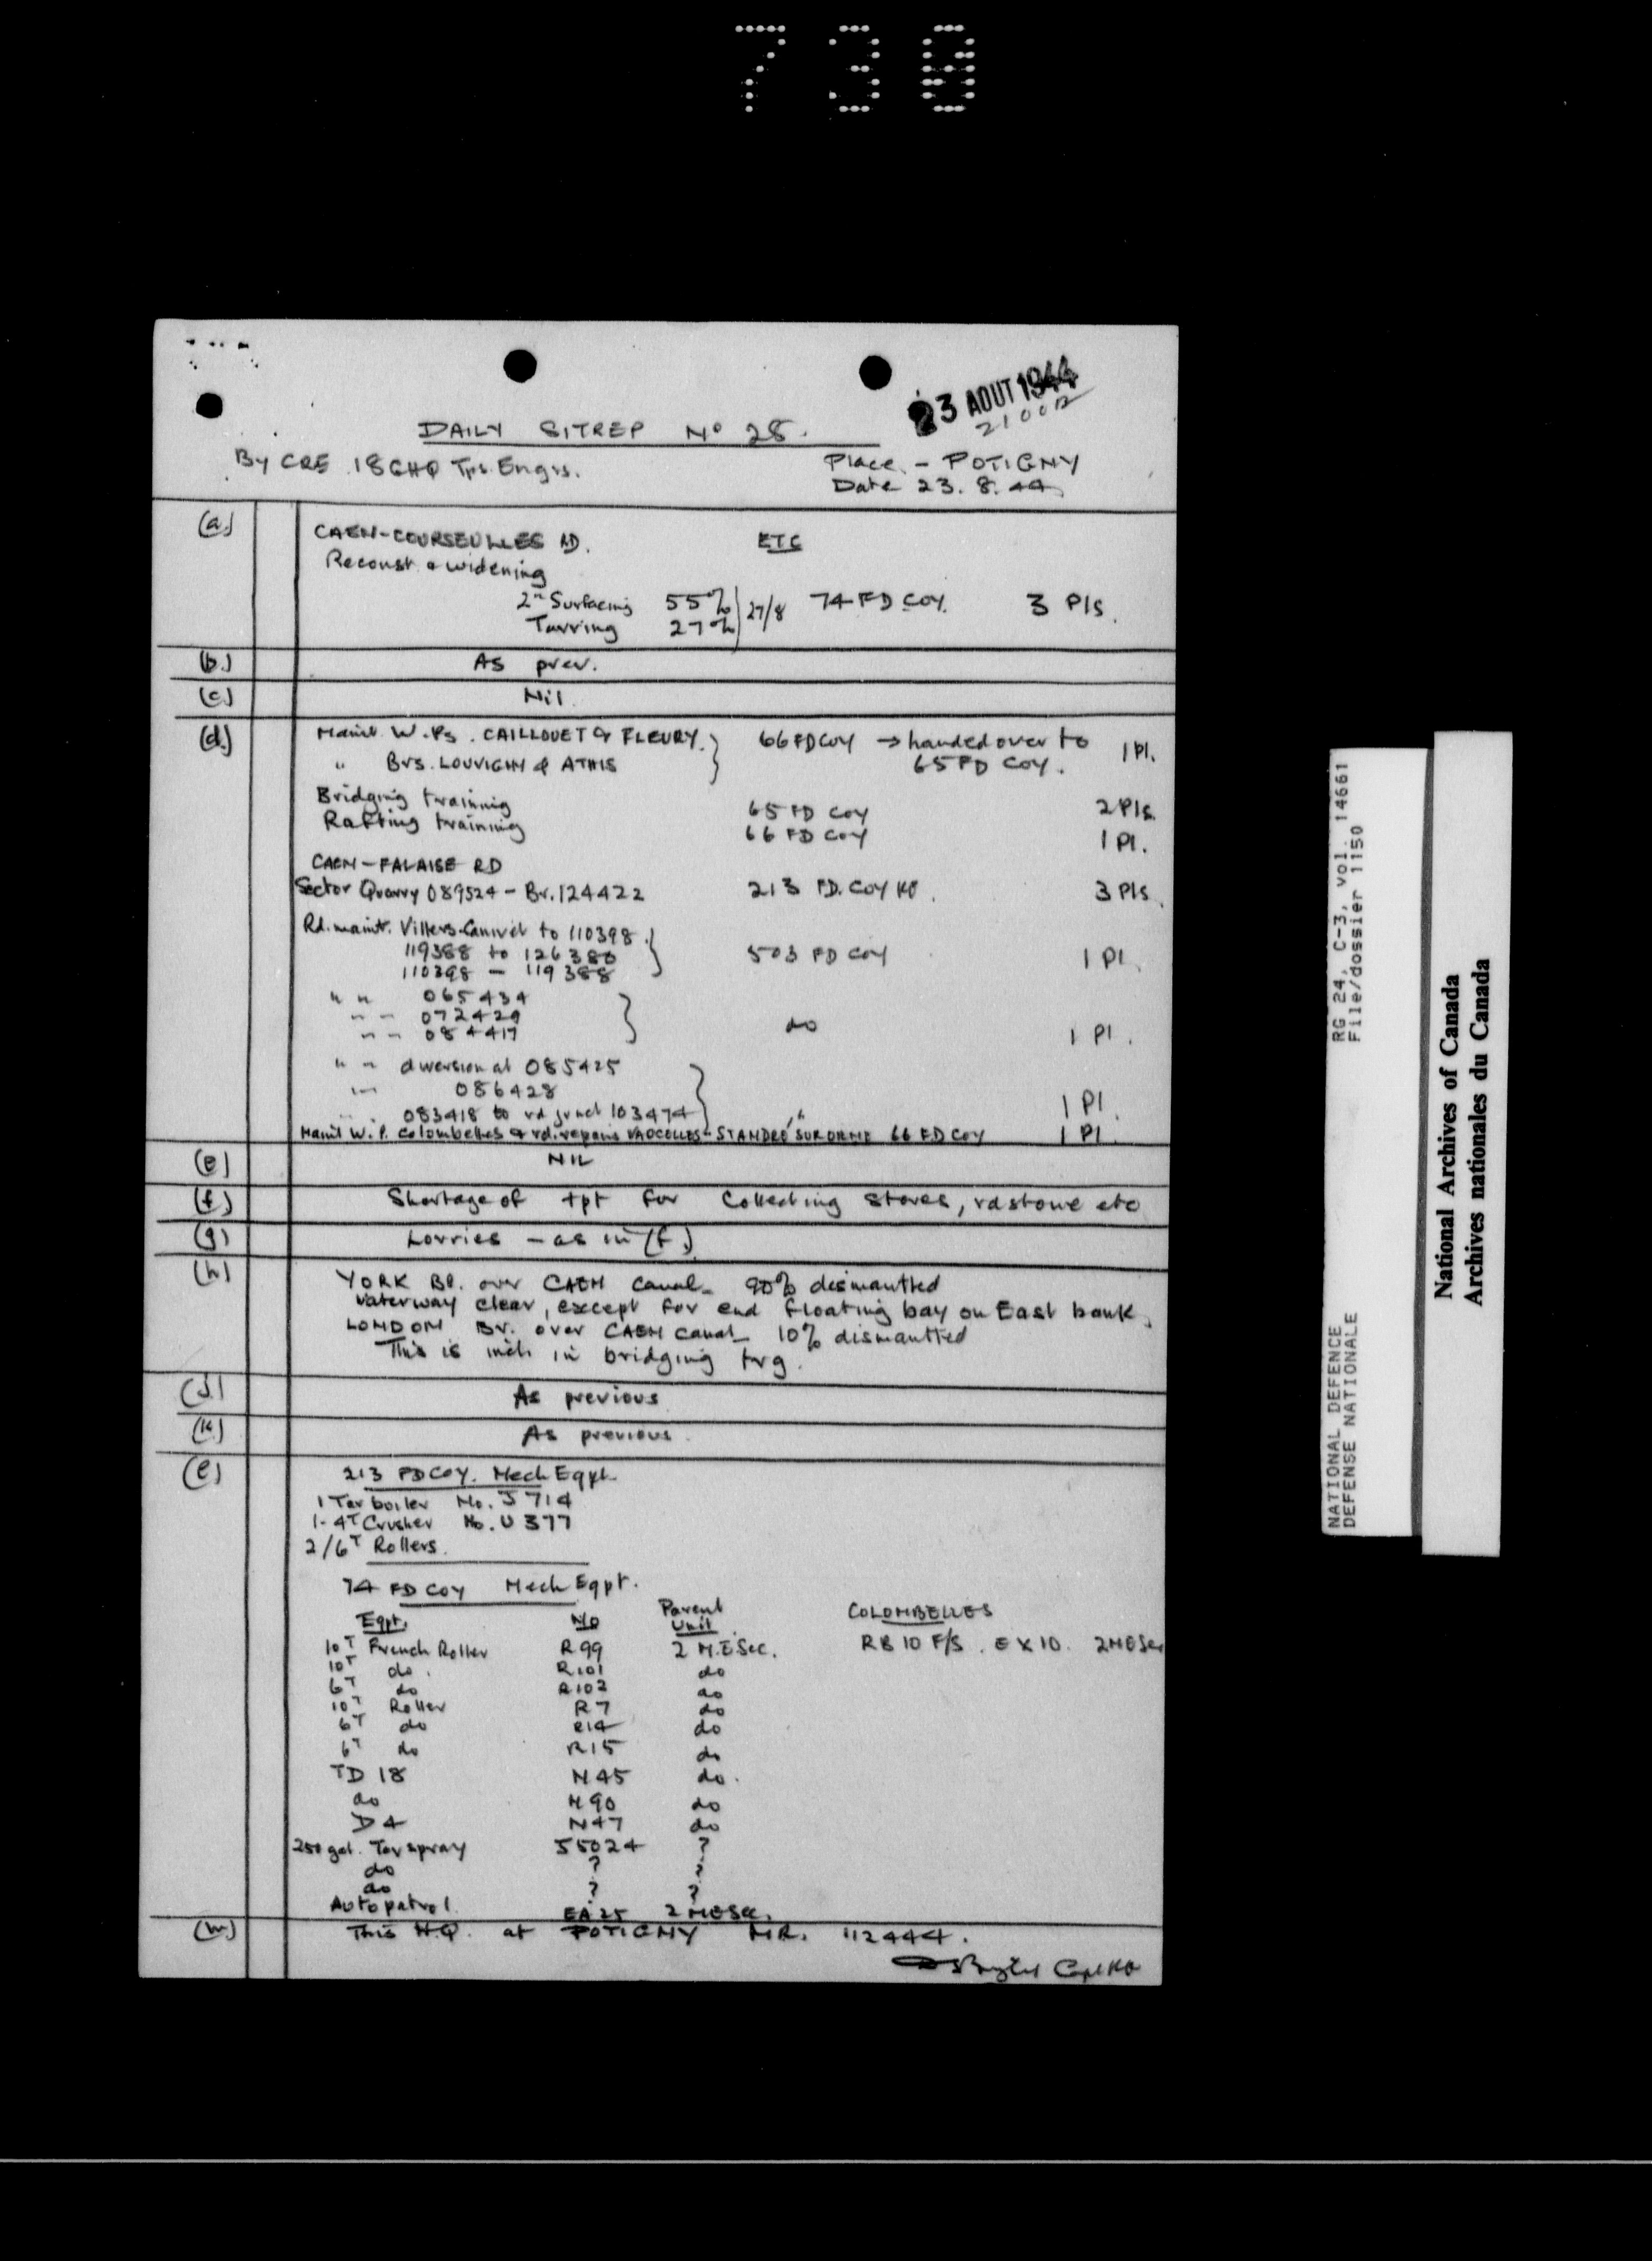 730
23 AOUT 1944
2100B
DAILY SITREP No 28.
By CRE 18 GHQ Tps. Engrs.
Place - POTIGNY
Date 23. 8. 44
(a) CAEN-COURSEULLES RD. ETC
Reconst. & widening
2nd Surfacing 55% } 27/8 74 FD COY. 3 Pls.
Tarring 27%
(b.) As prev.
(c) Nil.
(d.) Maint. W.Ps. CAILLOUET & FLEURY. } 66 FD COY → handed over to 1 Pl.
" Brs. LOUVIGNY & ATHIS 65 FD COY.
Bridging training 65 FD COY 2 Pls.
Rafting training 66 FD COY 1 Pl.
CAEN-FALAISE RD
Sector Quarry 089524 - Br. 124422 213 FD. COY RE. 3 Pls.
Rd. maint. Villers-Canivet to 110398 }
119388 to 126380 503 FD COY 1 Pl.
110398 - 119388
" " 065434 }
" " 072429 do
" " 084417 1 Pl.
" " diversion at 085425 }
" " 086428 1 Pl.
" " 083418 to rd junct 103474 "
Maint W.P. Colombelles & rd. repairs VAUCELLES - ST ANDRE SUR ORNE 66 FD COY 1 Pl.
(e) NIL
(f) Shortage of tpt for collecting stores, rd stone etc
(g) Lorries - as in (f)
(h) YORK BR. over CAEN Canal - 90% dismantled
Waterway clear, except for end floating bay on East bank.
LONDON Br. over CAEN canal - 10% dismantled
This is incl. in bridging trg.
(J.) As previous
(K.) As previous.
(l) 213 FD COY. Mech Eqpt.
1 Tar boiler No. J 714
1 - 4T Crusher No. U 377
2/6T Rollers.
74 FD COY Mech Eqpt.
Eqpt. No Parent Unit COLOMBELLES
10T French Roller R 99 2 M.E Sec. RB 10 F/S. EX 10. 2 ME Sec
10T do. R101 do
6T do R102 do
10T Roller R7 do
6T do R14 do
6T do R15 do
TD 18 N45 do.
do N90 do
D4 N47 do
250 gal. Tar spray J5024 ?
do ? ?
do ? ?
Autopatrol EA 25 2 ME Sec.
(m.) This H.Q. at POTIGNY MR. 112444.
Capt RE
RG 24, C-3, vol. 14661
File/dossier 1150
NATIONAL DEFENCE
DEFENSE NATIONALE
National Archives of Canada
Archives nationales du Canada